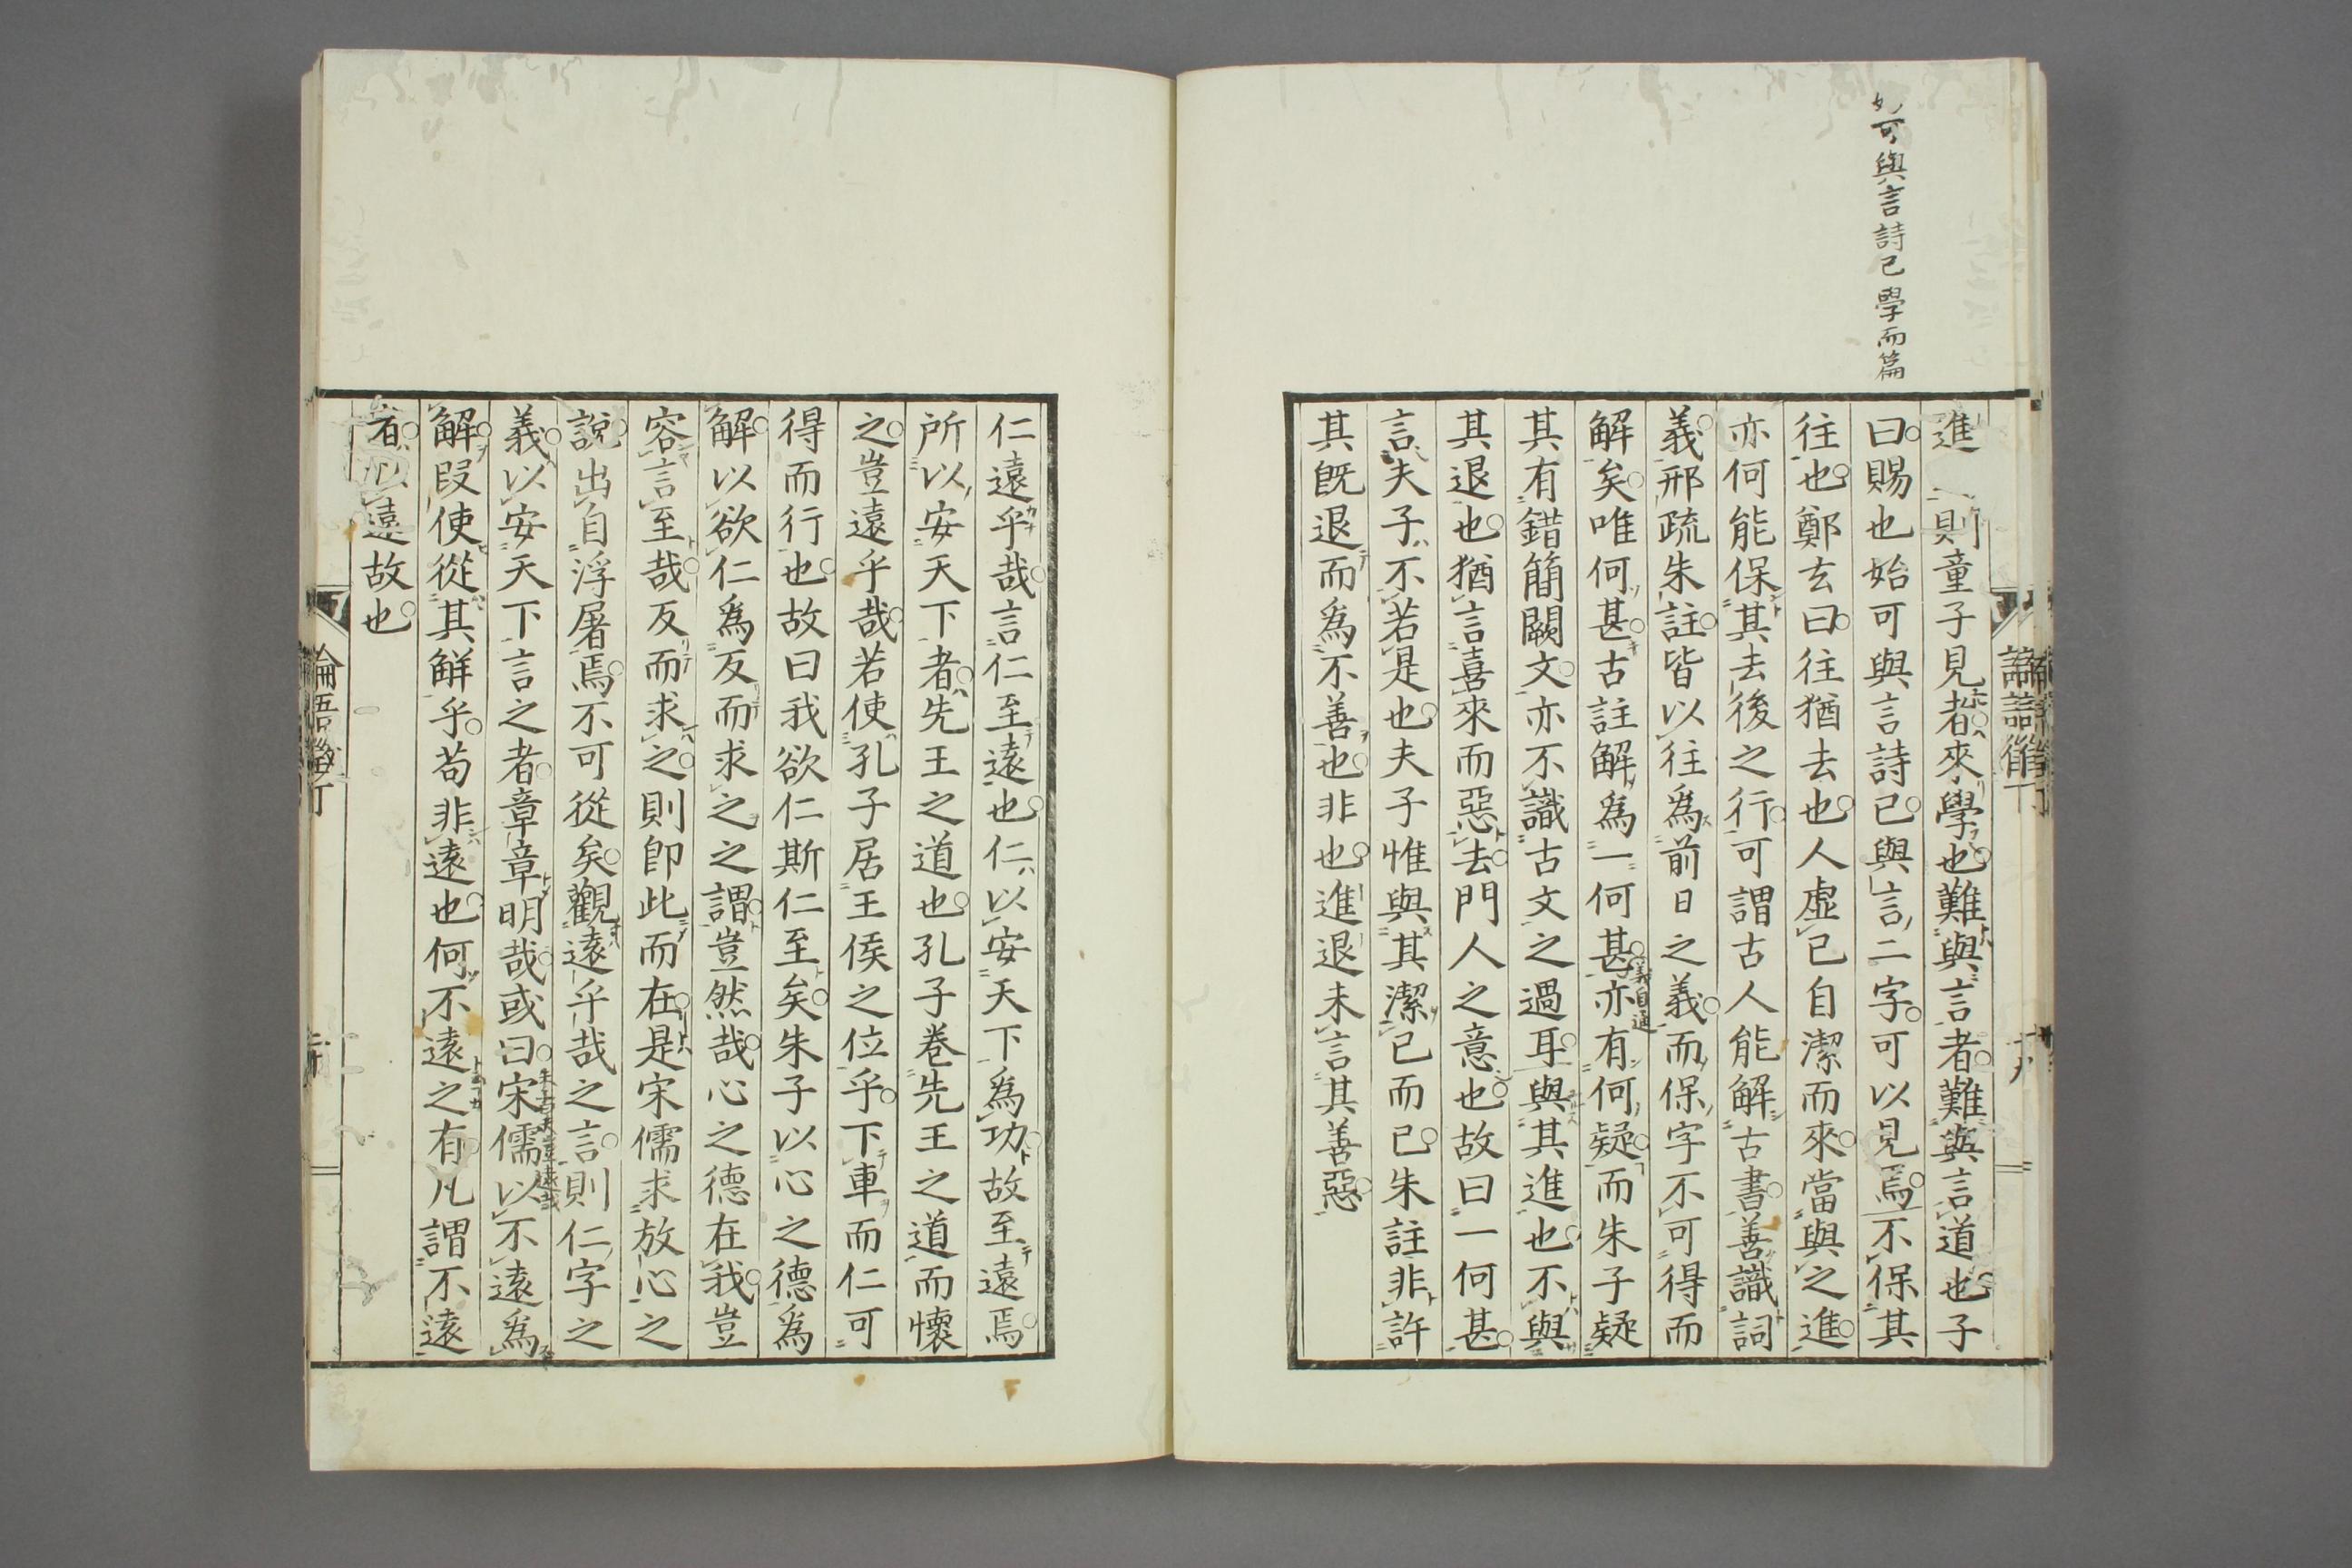 可與言詩已 學而篇
進 則童子見者來學也難與言者難與言道也子
曰賜也始可與言詩已與言二字可以見焉不保其
往也鄭玄曰往猶去也人虛己自潔而來當與之進
亦何能保其去後之行可謂古人能解古書善識詞
義邢疏朱註皆以往為前日之義而保字不可得而
解矣唯何甚古註解為一何甚亦有何疑而朱子疑
義自通
其有錯簡闕文亦不識古文之過耳與其進也不與
其退也猶言喜來而惡去門人之意也故曰一何甚
言夫子不若是也夫子惟與其潔己而已朱註非許
其既退而為不善也非也進退未言其善惡
仁遠乎哉言仁至遠也仁以安天下為功故至遠焉
所以安天下者先王之道也孔子卷先王之道而懷
之豈遠乎哉若使孔子居王侯之位乎下車而仁可
得而行也故曰我欲仁斯仁至矣朱子以心之德為
解以欲仁為反而求之之謂豈然哉心之德在我豈
容言至哉反而求之則即此而在是宋儒求放心之
說出自浮屠焉不可從矣觀遠乎哉之言則仁字之
義以安天下言之者章章明哉或曰宋儒以不遠為
朱註夫豈遠哉
解叚使從其解乎苟非遠也何不遠之有凡謂不遠
者以遠故也